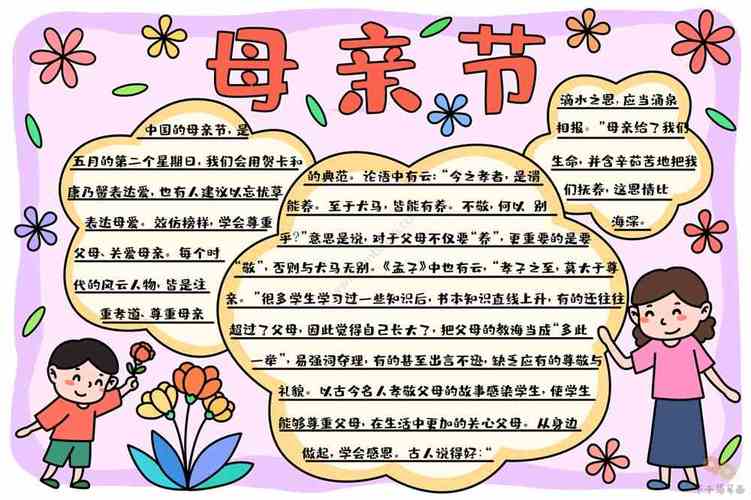 母亲节
中国的母亲节，是
五月的第二个星期日，我们会用贺卡和
康乃馨表达爱，也有人建议以忘忧草
表达母爱。效仿榜样，学会尊重
父母、关爱母亲。每个时
代的风云人物，皆是注
重孝道、尊重母亲
的典范。论语中有云：“今之孝者，是谓
能养。至于犬马，皆能有养。不敬，何以 别
乎？”意思是说，对于父母不仅要“养”，更重要的是要
“敬”，否则与犬马无别。《孟子》中也有云，“孝子之至，莫大于尊
亲。”很多学生学习过一些知识后，书本知识直线上升，有的还往往
超过了父母，因此觉得自己长大了，把父母的教诲当成“多此
一举”，易强词夺理，有的甚至出言不逊，缺乏应有的尊敬与
礼貌。以古今名人孝敬父母的故事感染学生，使学生
能够尊重父母，在生活中更加的关心父母。从身边
做起，学会感恩。古人说得好：“
滴水之恩，应当涌泉
相报。”母亲给了我们
生命，并含辛茹苦地把我
们抚养，这恩情比
海深。